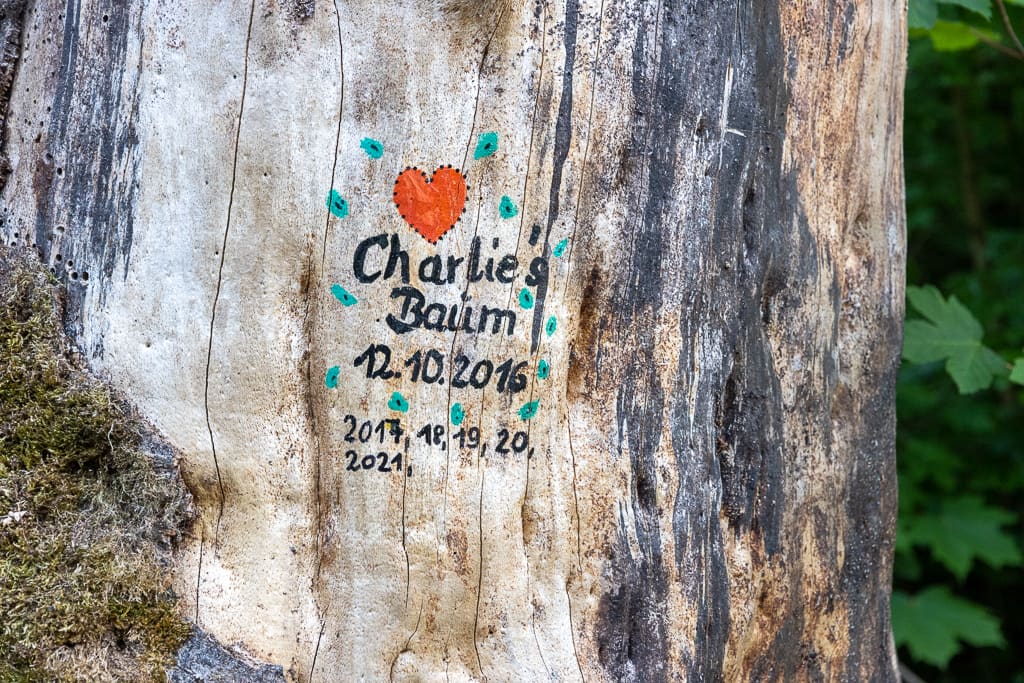 Charlie's
Baum
12.10.2016
2017, 18, 19, 20,
2021,